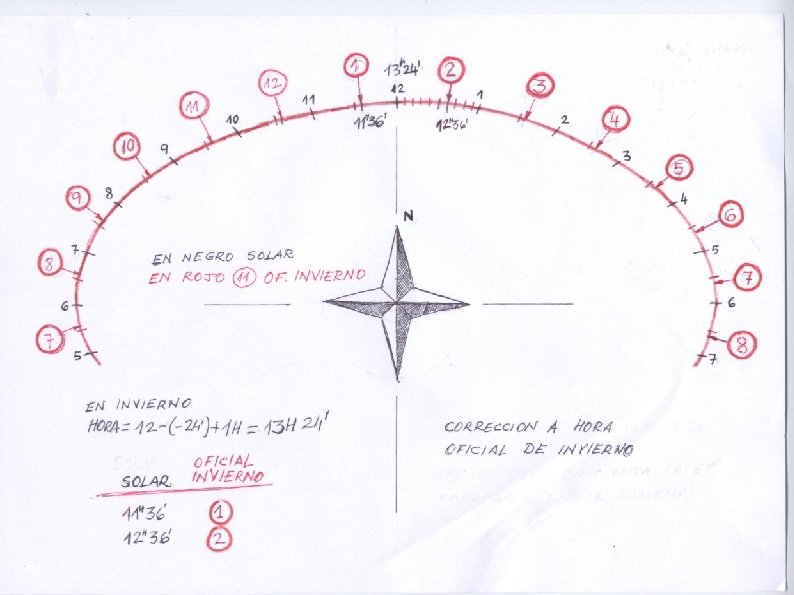 1
13h24'
2
12
12
3
11
11
1
11h36'
12h56'
10
2
4
10
9
3
5
9
8
4
6
8
7
5
7
7
6
6
8
5
7
N
EN NEGRO SOLAR
EN ROJO 11 OF. INVIERNO
EN INVIERNO
HORA = 12-(-24')+1H = 13H 24'
SOLAR OFICIAL INVIERNO
11h36' 1
12h36' 2
CORRECCION A HORA
OFICIAL DE INVIERNO